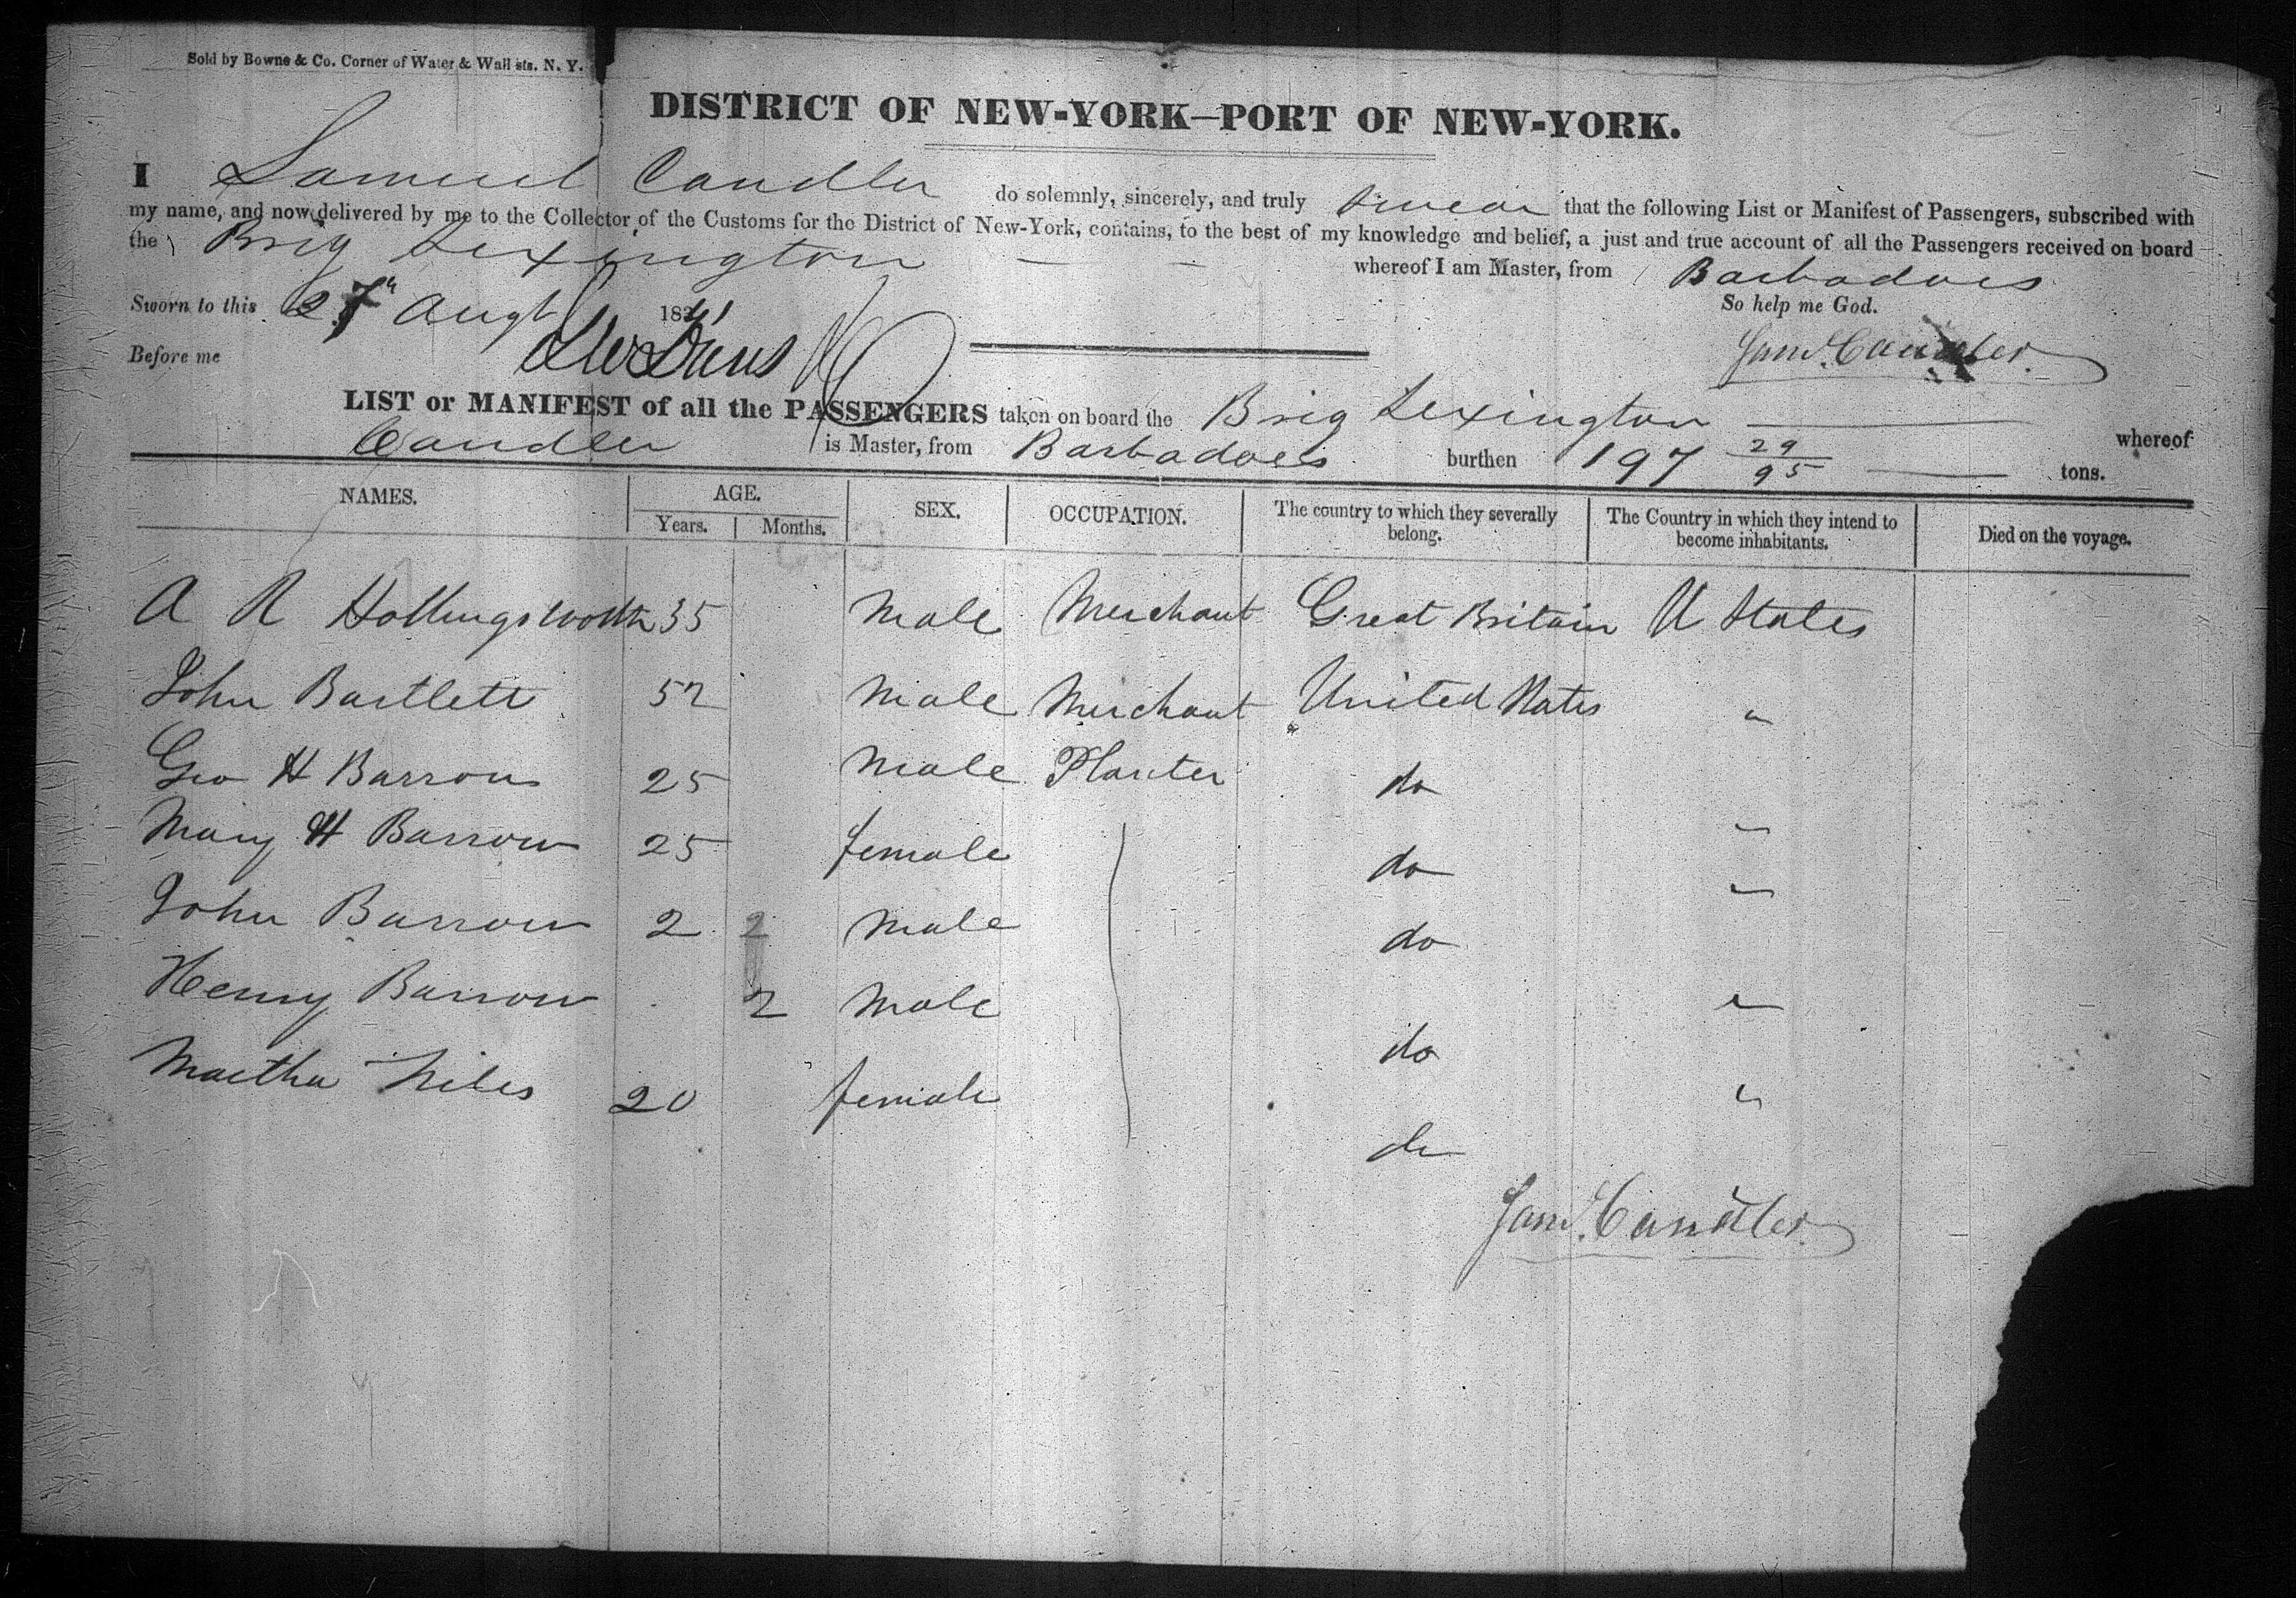 Sold by Bowne & Co. Corner of Water & Wall sts. N. Y.
DISTRICT OF NEW-YORK—PORT OF NEW-YORK.
I Samuel Candler do solemnly, sincerely, and truly swear that the following List or Manifest of Passengers, subscribed with
my name, and now delivered by me to the Collector of the Customs for the District of New-York, contains, to the best of my knowledge and belief, a just and true account of all the Passengers received on board
the Brig Lexington whereof I am Master, from Barbadoes
Sworn to this 27th Augt 18 So help me God.
Before me Saml. Candler
LIST or MANIFEST of all the PASSENGERS taken on board the Brig Lexington whereof
Candler is Master, from Barbadoes burthen 197 29/95 tons.
NAMES. AGE. Years. Months. SEX. OCCUPATION. The country to which they severally belong. The Country in which they intend to become inhabitants. Died on the voyage.
A R Hollingsworth 35 Male Merchant Great Britain U States
John Bartlett 52 Male Merchant United States "
Geo H Barrow 25 Male Planter do "
Mary H Barrow 25 female do "
John Barrow 2 2 Male do "
Henry Barrow 2 Male do "
Martha Niles 20 female do
Saml. Candler